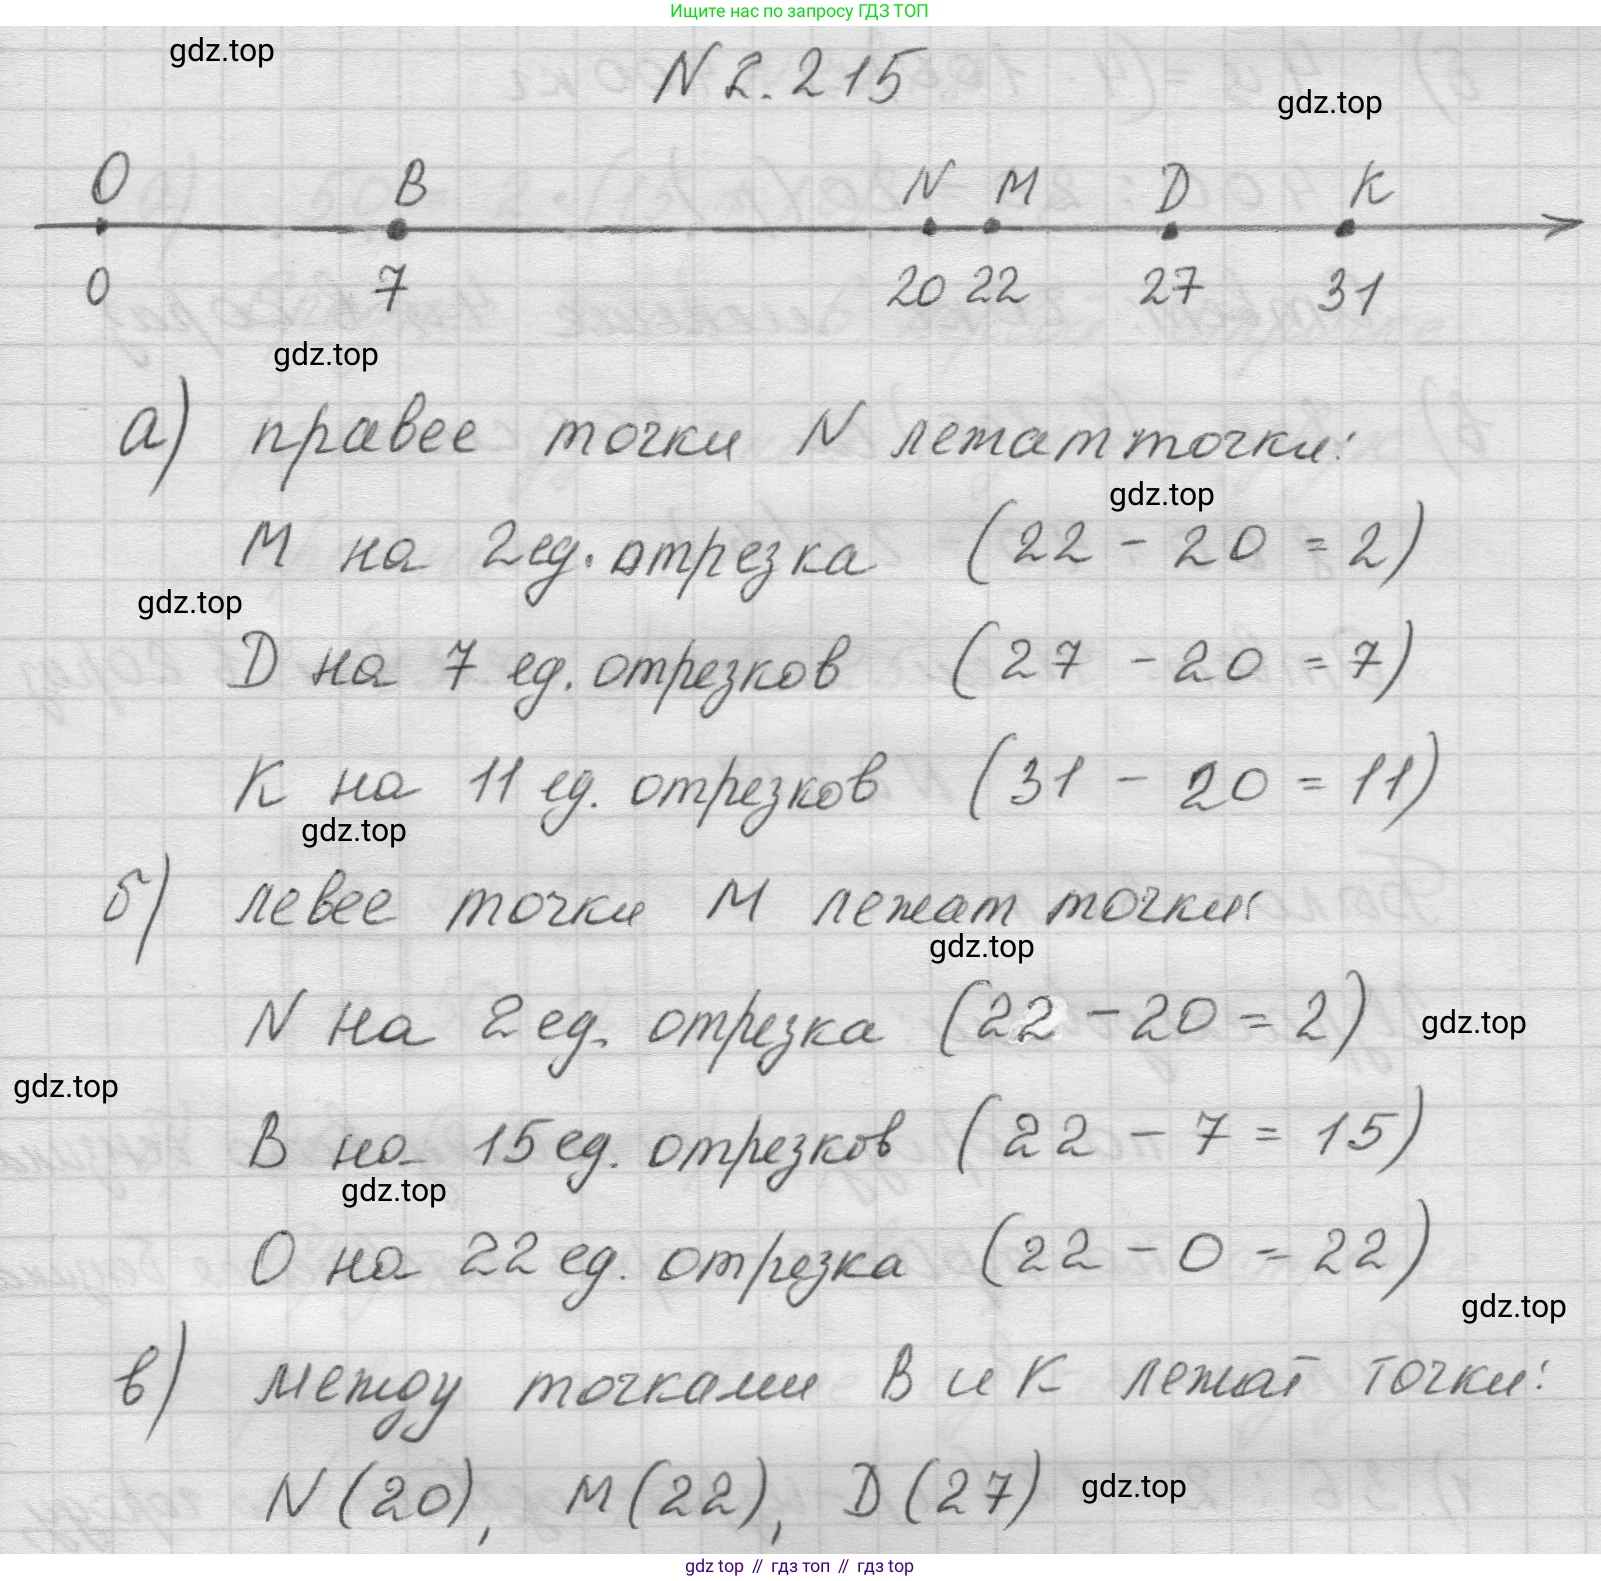 Ищите нас по запросу ГДЗ ТОП
gdz.top
N 2.215
gdz.top
O B N M D K
0 7 20 22 27 31
gdz.top
а) правее точки N лежат точки:
gdz.top
M на 2 ед. отрезка (22 - 20 = 2)
gdz.top
D на 7 ед. отрезков (27 - 20 = 7)
K на 11 ед. отрезков (31 - 20 = 11)
gdz.top
б) левее точки M лежат точки:
gdz.top
N на 2 ед. отрезка (22 - 20 = 2)
gdz.top
gdz.top
B на 15 ед. отрезков (22 - 7 = 15)
gdz.top
O на 22 ед. отрезка (22 - 0 = 22)
gdz.top
в) между точками B и K лежат точки:
N (20), M (22), D (27)
gdz.top
gdz top // гдз топ // гдз top